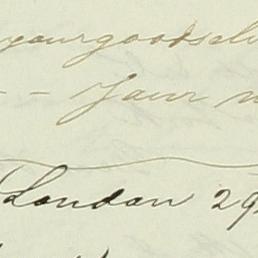 yourgoodsel
-- Your
London 29